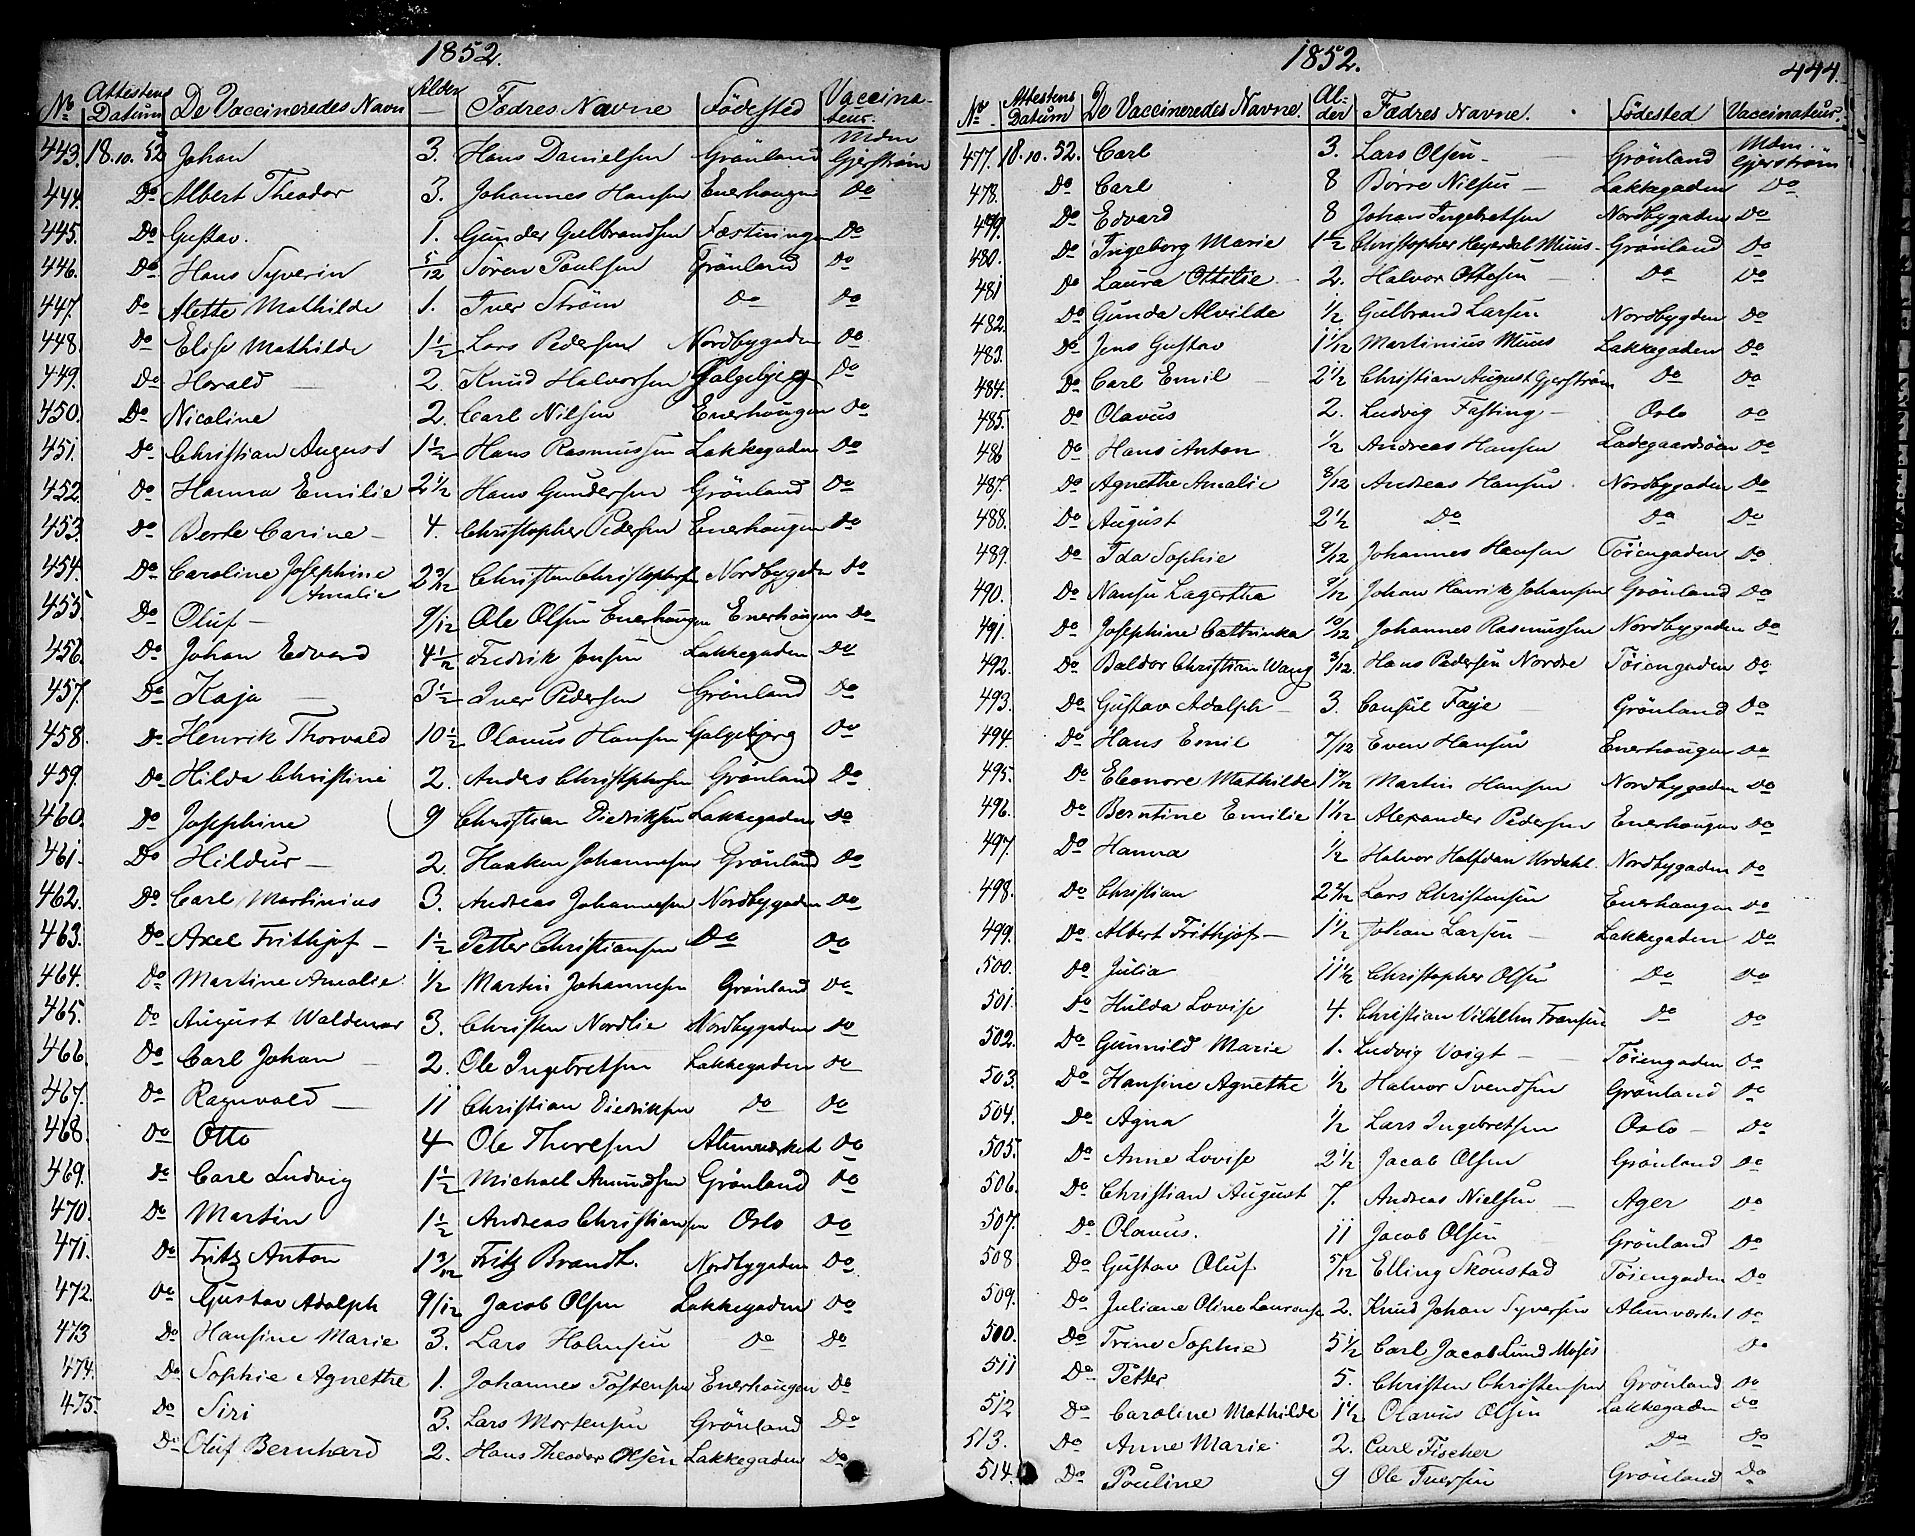 1852.
No Attestens Datum De Vaccineredes Navn Alder Fædres Navne Födested Vaccinateur.
443. 18.10.52 Johan 3. Hans Danielsen Grönland Mdm Gjerström
444. Do Albert Theodor 3. Johannes Hansen Enerhaugen Do
445. Do Gustav. 1. Gunder Gulbrandsen Fæstningen Do
446. Do Hans Syverin 5/12 Sören Paulsen Grönland Do
447. Do Alette Mathilde 1. Iver Ström Do Do
448. Do Elise Mathilde 1 1/2 Lars Pedersen Nordbygaden Do
449. Do Harald 2. Knud Halvorsen Galgebjerg Do
450. Do Nicoline 2. Carl Nilsen Enerhaugen Do
451. Do Christian August 1 1/2 Hans Rasmussen Lakkegaden Do
452. Do Hanna Emilie 2 1/2 Hans Gundersen Grönland Do
453. Do Berte Carine 4. Christopher Pedersen Enerhaugen Do
454. Do Caroline Josephine Amalie Christen Christophersen Nordbygaden Do
455. Do Oluf 9/12 Ole Olsen Enerhaugen Enerhaugen Do
456. Do Johan Edvard 4 1/2 Fredrik Jensen Lakkegaden Do
457. Do Kaja 3 1/2 Iver Pedersen Grönland Do
458. Do Henrik Thorvald 10 1/2 Olaus Hansen Galgebjerg Do
459. Do Hilda Christine 2. Andes Christophersen Grönland Do
460. Do Josephine 9 Christian Diedriksen Lakkegaden Do
461. Do Hildur 2. Haaken Johannesen Grönland Do
462. Do Carl Martinius 3. Andreas Johannesen Nordbygaden Do
463. Do Axel Frithjof 1 1/2 Petter Christiansen Do Do
464. Do Martine Amalie 1/2 Martin Johannesen Grönland Do
465. Do August Waldemar 3. Christen Nordlie Nordbygaden Do
466. Do Carl Johan 2. Ole Ingebretsen Lakkegaden Do
467. Do Ragnvald 11 Christian Diedriksen Do Do
468. Do Otto 4 Ole Thoresen Alunværket Do
469. Do Carl Ludvig 1 1/2 Michael Amundsen Grönland Do
470. Do Martin 1 1/2 Andreas Christiansen Oslo Do
471. Do Fritz Anton 1 3/12 Fritz Brandt. Nordbygaden Do
472. Do Gustav Adolph 9/12 Jacob Olsen Lakkegaden Do
473 Do Hansine Marie 3. Lars Holmsen Do Do
474. Do Sophie Agnethe 1. Johannes Tostensen Enerhaugen Do
475. Do Siri 3. Lars Mortensen Grönland Do
Do Oluf Bernhard 2. Hans Theodor Olsen Lakkegaden Do
1852.
444.
No Attestens Datum De Vaccineredes Navne. Alder Fædres Navne. Födested Vaccinateur.
477. 18.10.52. Carl 3. Lars Olsen Grönland Mdm. Gjerström
478. Do Carl 8 Börre Nilsen Lakkegaden Do
499. Do Edvard 8 Johans Ingebretsen Nordbygaden Do
480. Do Ingeborg Marie 1 1/2 Christopher Heyerdal Muus Grönland Do
481 Do Laura Ottilie 2. Halvor Ottosen Do Do
482. Do Gunda Alvilde 1/2 Gulbrand Larsen Nordbygden Do
483. Do Jens Gustav 1 1/12 Martinius Muus Lakkegaden Do
484. Do Carl Emil 2 1/2 Christian August Gjerström Do Do
485. Do Olavus 2. Ludvig Fasting Oslo Do
486 Do Hans Anton 1/2 Andreas Hansen Ladegaardsöen Do
487. Do Agnethe Amalie 8/12 Andreas Hansen. Nordbygaden Do
488. Do August 2 1/2 Do Do Do
489. Do Ida Sophie 9/12 Johannes Hansen Töiengaden Do
490. Do Nansu Lagertha 9/12 Johan Henrik Johansen Grönland Do
491. Do Josephine Cathrinka 10/12 Johannes Rasmussen Nordbygaden Do
492. Do Baldor Christian Wang 3/12. Hans Pedersen Nordre Töiengaden Do
493. Do Gustav Adolph 3. Consul Faye Grönland Do
494 Do Hans Emil 7/12 Even Hansen Enerhaugen Do
495. Do Eleonore Mathilde Martin Hansen Nordbygaden Do
496. Do Berntine Emilie 1 1/12 Alexander Pedersen Enerhaugen Do
497. Do Hanna 1/2 Halvor Halfdan Urdahl. Nordbygaden Do
498. Do Christian Lars Christensen Enerhaugen Do
499. Do Albert Frithjof 1 1/2 Johan Larsen Lakkegaden Do
500. Do Julia 11 1/2 Christopher Olsen Do Do
501. Do Hulda Lovise 4. Christian Vilhelm Fransen Do Do
502. Do Gunnild Marie 1. Ludvig Voigt Töiengaden Do
503. Do Hansine Agnethe 1/2 Halvor Svendsen Grönland Do
504. Do Agna 1/2 Lars Ingebretsen Oslo Do
505. Do Anne Lovise 2 1/2 Jacob Olsen Grönland Do
506. Do Christian August 7. Andreas Nielsen Ager Do
507. Do Olavus. 11 Jacob Olsen Grönland Do
508 Do Gustav Oluf 5/12 Elling Skoustad Töiengaden Do
509. Do Juliane Oline Laurense 2. Knud Johan Syversen Alunværket Do
500. Do Trine Sophie 5 1/2 Carl Jacob Lund Moses Do
511 Do Petter 5. Christen Christensen Grönland Do
512 Do Caroline Mathilde 1 1/2 Olavus Olsen Lakkegaden Do
513. Do Anne Marie 2. Carl Fischer Do Do
514. Do Pouline 9 Ole Iversen Grönland Do